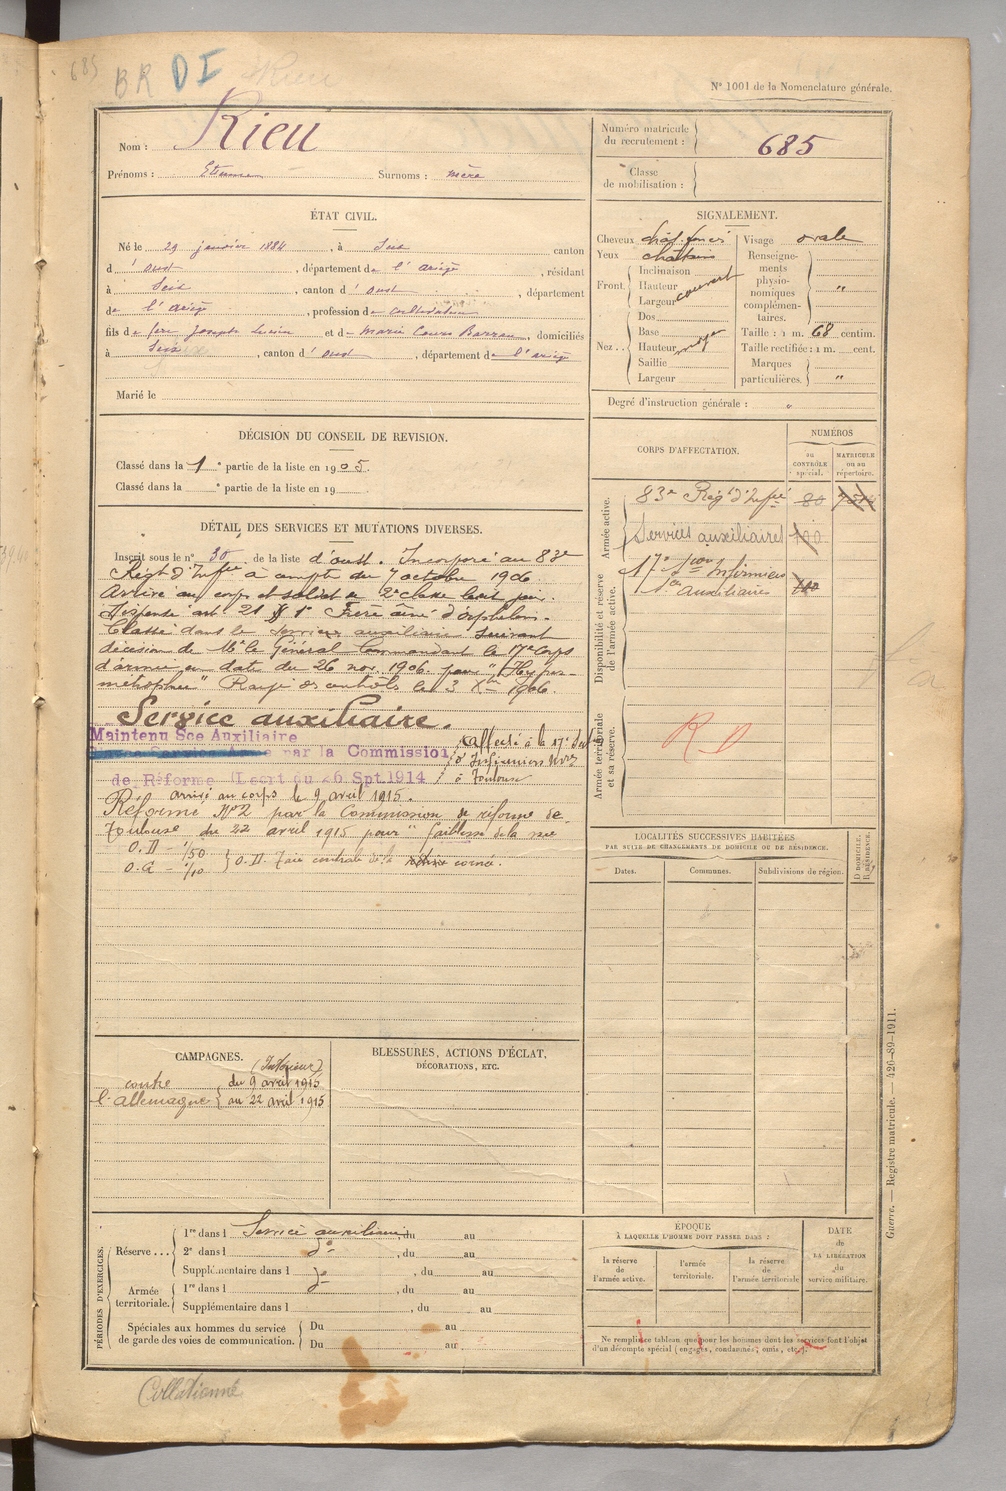 685
BR DI Rieu
N° 1001 de la Nomenclature générale.
Nom : Rieu
Prénoms : Etienne Surnoms : mèra
Numéro matricule du recrutement : 685
Classe de mobilisation :
ÉTAT CIVIL.
Né le 29 janvier 1884, à Seix canton
d'oust, département de l'ariège, résidant
à Seix, canton d'oust, département
de l'ariège, profession de cultivateur
fils de feu Joseph Lucien et de Marie Barrau, domiciliés
à Seix, canton d'oust, département de l'ariège
Marié le
SIGNALEMENT.
Cheveux chât. foncé
Yeux chatains
Front. Inclinaison
Hauteur
Largeur couvert
Nez. Dos
Base
Hauteur moyen
Saillie
Largeur
Visage ovale
Renseignements physionomiques complémentaires. "
Taille : 1 m. 68 centim.
Taille rectifiée : 1 m. cent.
Marques particulières. "
Degré d'instruction générale : "
DÉCISION DU CONSEIL DE REVISION.
Classé dans la 1e partie de la liste en 1905.
Classé dans la e partie de la liste en 19
CORPS D'AFFECTATION.
NUMÉROS
au CONTRÔLE spécial.
MATRICULE ou au répertoire.
Armée active.
83e Régt d'Infie 80
Services auxiliaires
Disponibilité et réserve de l'armée active.
17e Son Infirmiers
Sce Auxiliaires
Armée territoriale et sa réserve.
R D
DÉTAIL DES SERVICES ET MUTATIONS DIVERSES.
Inscrit sous le n° 30 de la liste d'oust. Incorporé au 83e
Régt d'Infie à compter du 7 octobre 1906
Arrivé au corps et soldat de 2e classe ledit jour.
Dispensé art 21 § 1° Frère aîné d'orphelins.
Classé dans le service auxiliaire suivant
décision de Mr le Général Commandant le 17e Corps
d'armée en date du 26 nov. 1906 pour "Hyper-
métrophie" Rayé des contrôles le 3 Xbre 1906.
Service auxiliaire.
Maintenu Sce Auxiliaire
par la Commission
de Réforme (Lecrt du 26 Spt.1914
affecté à la 17e Sect
d'Infirmiers Mres
à Toulouse
arrivé au corps le 9 avril 1915.
Réformé N°2 par la Commission de réforme de
Toulouse du 22 avril 1915 pour "faiblesse de la vue
O. D - 1/50
O. G 1/10 } O. D. Taie centrale de la cornée.
LOCALITÉS SUCCESSIVES HABITÉES
PAR SUITE DE CHANGEMENTS DE DOMICILE OU DE RÉSIDENCE.
Dates. Communes. Subdivisions de région. D DOMICILE. R RÉSIDENCE.
CAMPAGNES.
(Intérieur)
contre du 9 avril 1915
l'allemagne } au 22 avril 1915
BLESSURES, ACTIONS D'ÉCLAT,
DÉCORATIONS, ETC.
PÉRIODES D'EXERCICES.
Réserve... 1re dans l Service auxiliaire du au
2e dans l do, du au
Supplémentaire dans l do, du au
Armée territoriale. 1re dans l do, du au
Supplémentaire dans l , du au
Spéciales aux hommes du service de garde des voies de communication. Du au
Du au
ÉPOQUE
À LAQUELLE L'HOMME DOIT PASSER DANS :
la réserve de l'armée active.
l'armée territoriale.
la réserve de l'armée territoriale
DATE de LA LIBÉRATION du service militaire.
Ne remplir ce tableau que pour les hommes dont les services font l'objet
d'un décompte spécial (engagés, condamnés, omis, etc.).
Guerre. — Registre matricule. — 426-89-1911.
Collationné